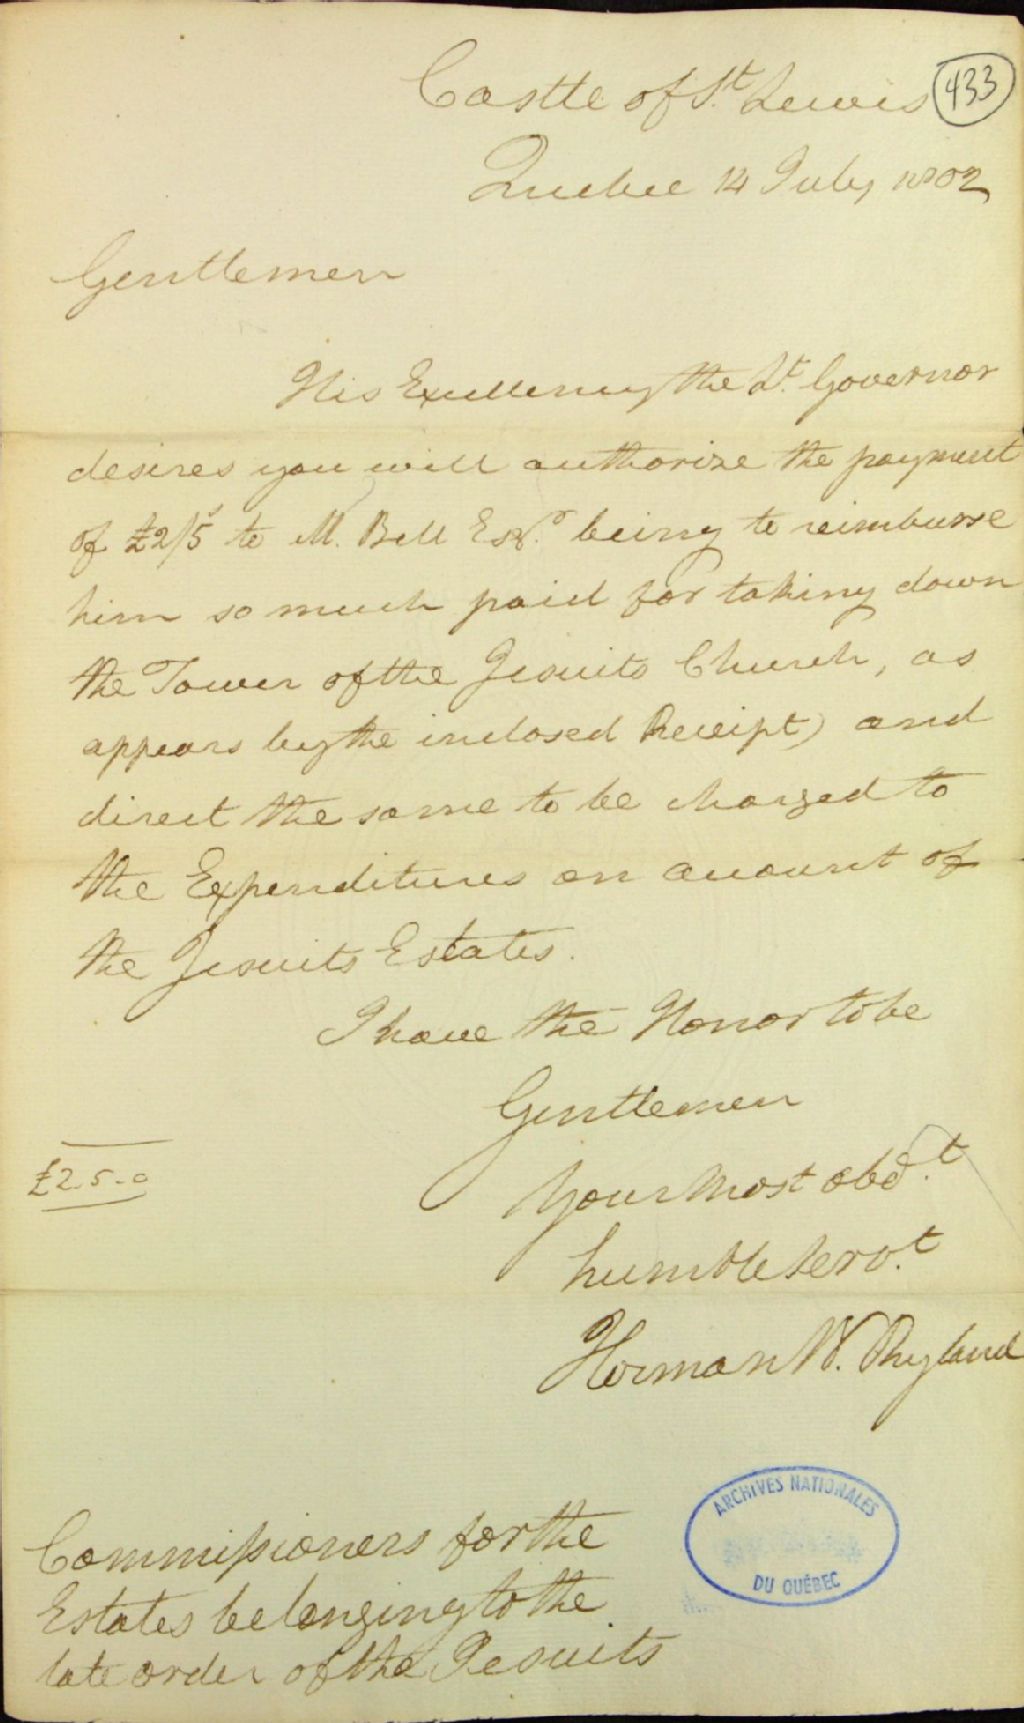 433
Castle of St. Lewis
Quebec 14 July 1802
Gentlemen
His Excellency the Lt. Governor
desires you will authorize the payment
of £2/5s to M. Bell Esqr. being to reimburse
him so much paid for taking down
the Tower of the Jesuits Church, as
appears by the inclosed Receipt) and
direct the same to be charged to
the Expenditures on account of
the Jesuits Estates.
I have the Honor to be
Gentlemen
£2.5-0
Your Most obdt.
humble servt.
Herman W. Ryland
ARCHIVES NATIONALES
DU QUÉBEC
Commissioners for the
Estates belonging to the
late order of the Jesuits